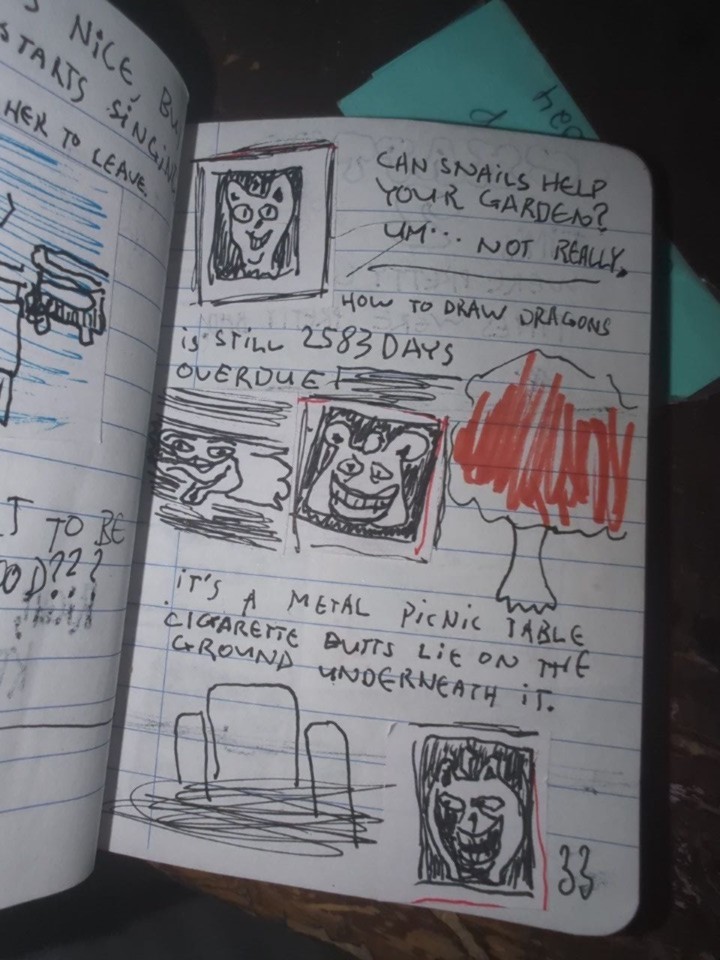 NiCE, BU
STARTS SiNGiN
HER TO LEAVE.
TO BE
???
CAN SNAILS HELP
YOUR GARDEN?
UM... NOT REALLY.
HOW TO DRAW DRAGONS
iS STiLL 2583 DAYS
OVERDUE!
iT'S A METAL PiCNiC TABLE
CIGARETTE BUTTS LiE ON THE
GROUND UNDERNEATH iT.
33